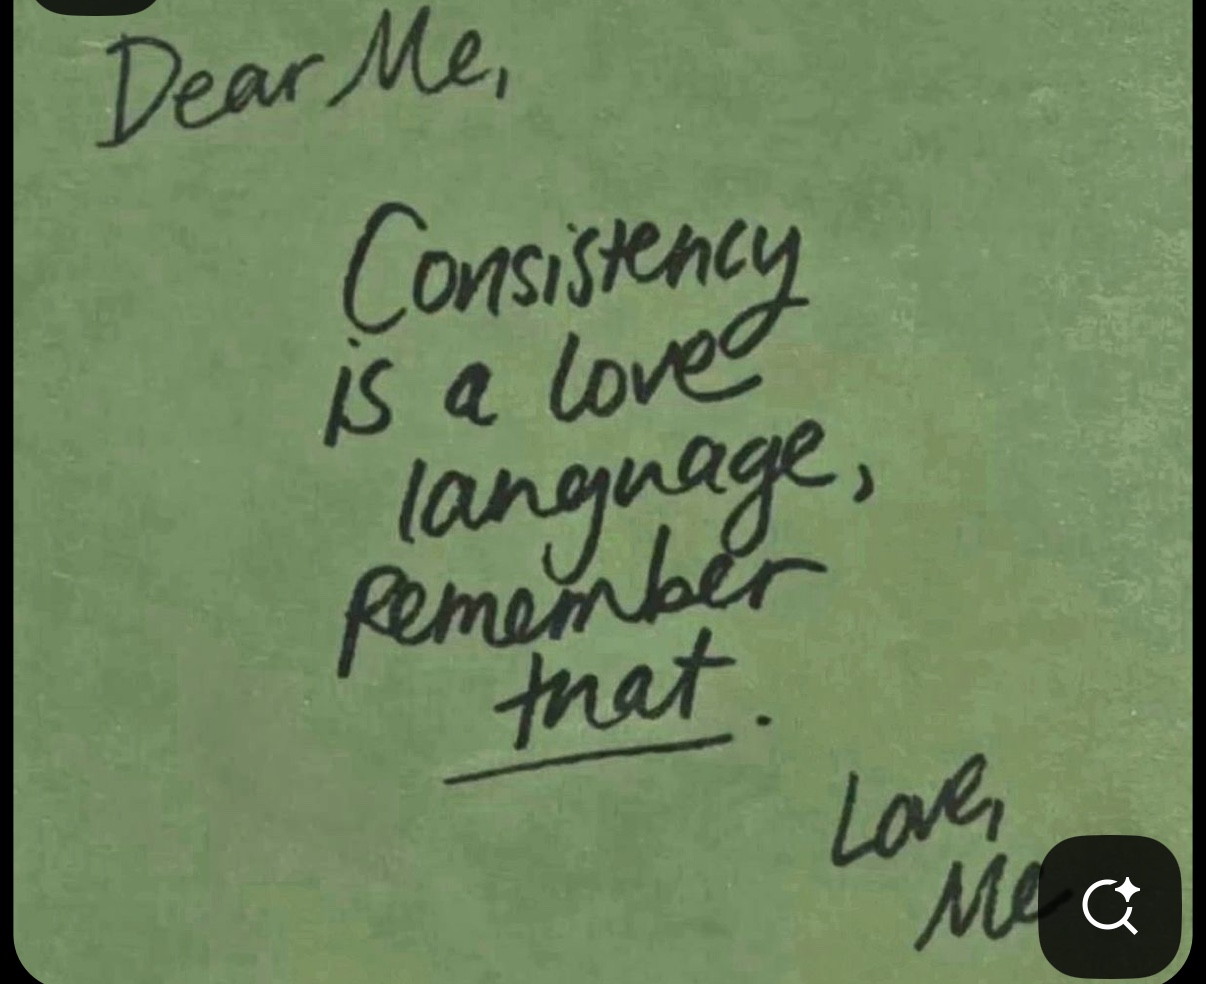 Dear Me,
Consistency
is a love
language,
Remember
that.
Love,
Me